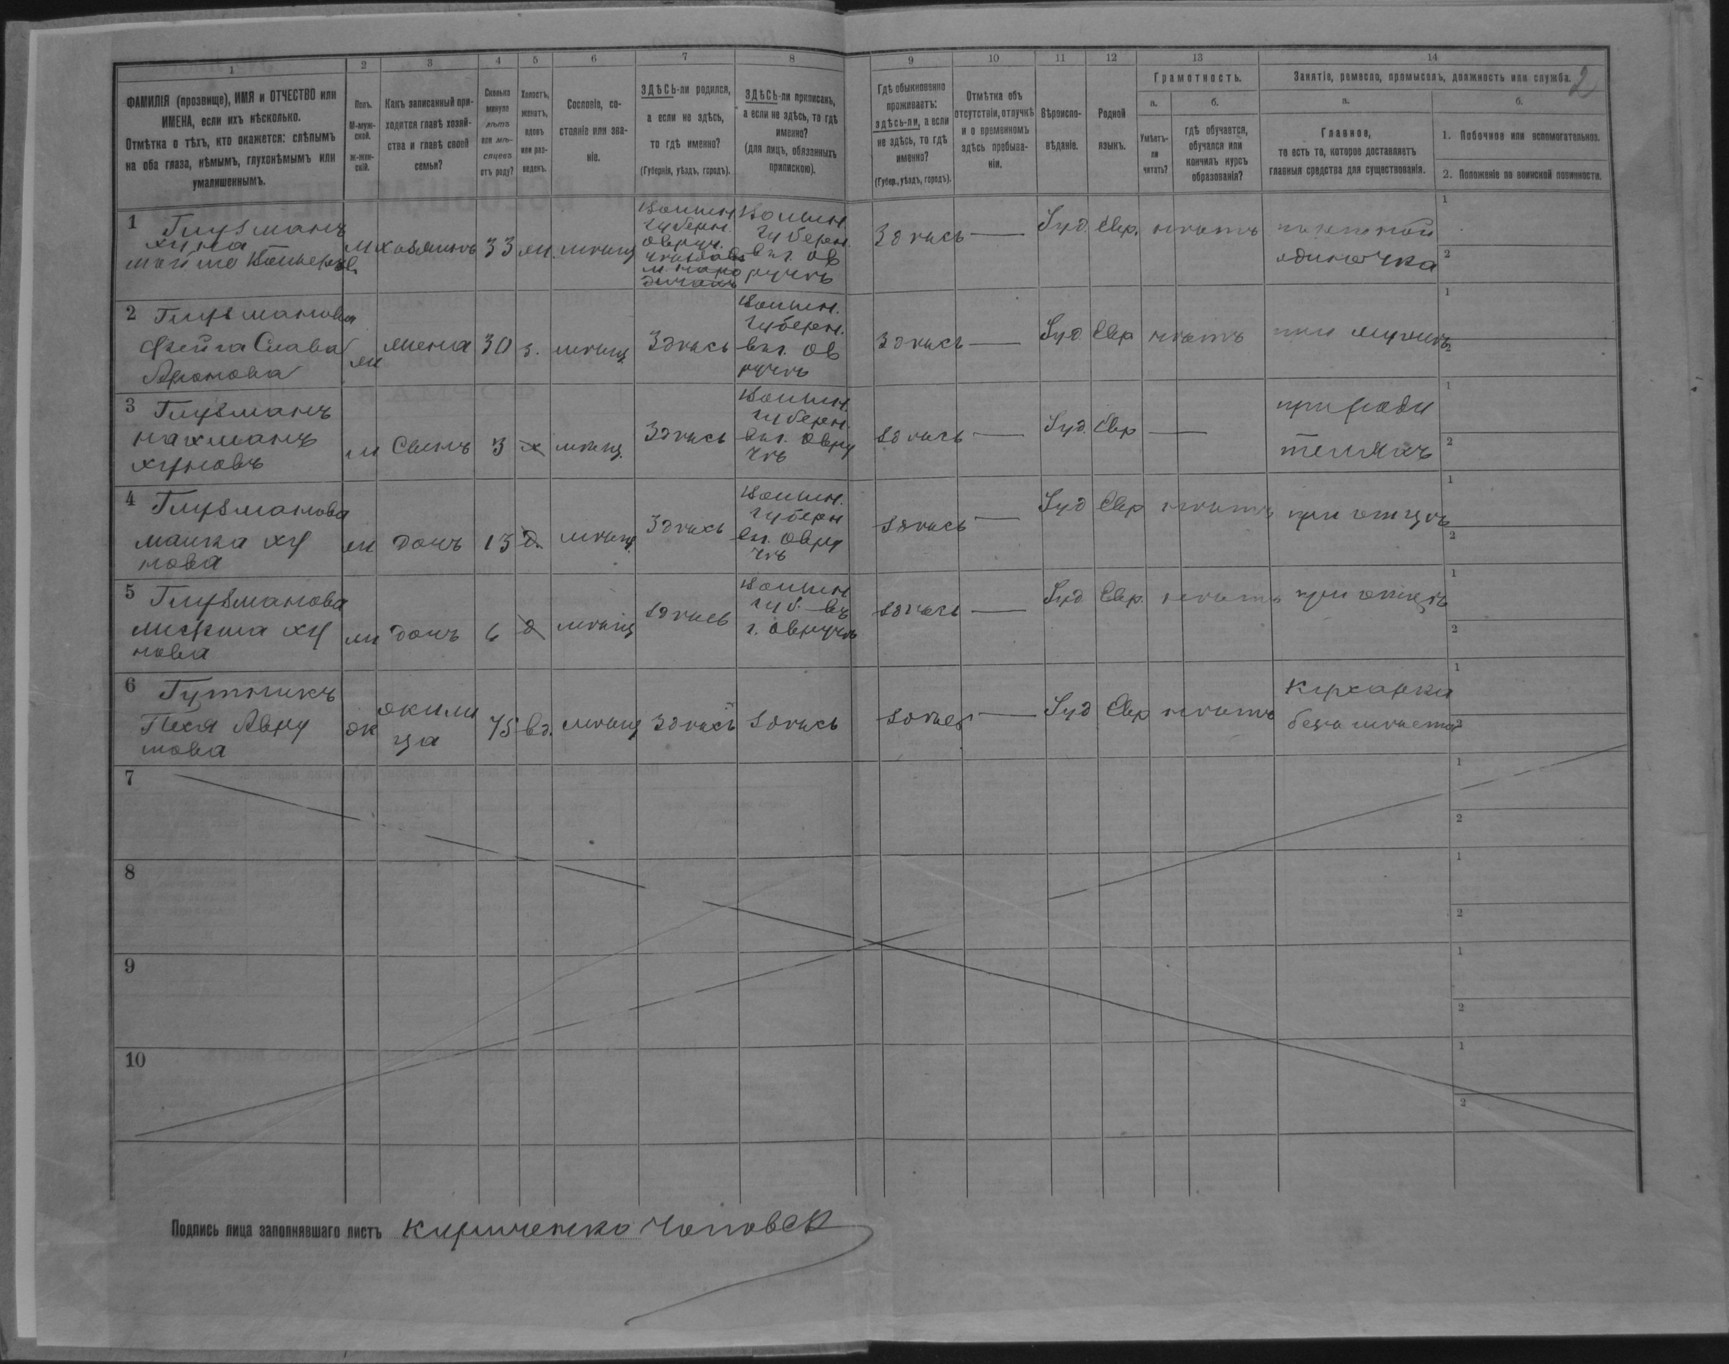 1 2 3 4 5 6 7 8 9 10 11 12 13 14
ФАМИЛІЯ (прозвище), ИМЯ и ОТЧЕСТВО или
ИМЕНА, если ихъ нѣсколько.
Отмѣтка о тѣхъ, кто окажется: слѣпымъ
на оба глаза, нѣмымъ, глухонѣмымъ или
умалишеннымъ.
Полъ.
М-муж-
ской.
Ж-жен-
скій.
Какъ записанный при-
ходится главѣ хозяй-
ства и главѣ своей
семьи?
Сколько
минуло
лѣтъ
или мѣ-
сяцевъ
отъ роду?
Холостъ,
женатъ,
вдовъ
или раз-
веденъ.
Сословіе, со-
стояніе или зва-
ніе.
ЗДѢСЬ-ли родился,
а если не здѣсь,
то гдѣ именно?
(Губернія, уѣздъ, городъ).
ЗДѢСЬ-ли приписанъ,
а если не здѣсь, то гдѣ
именно?
(для лицъ, обязанныхъ
припискою).
Гдѣ обыкновенно
проживаетъ:
здѣсь-ли, а если
не здѣсь, то гдѣ
именно?
(Губер., уѣздъ, городъ).
Отмѣтка объ
отсутствіи, отлучкѣ
и о временномъ
здѣсь пребыва-
ніи.
Вѣроиспо-
вѣданіе.
Родной
языкъ.
Грамотность.
а.
Умѣетъ-
ли
читать?
б.
гдѣ обучается,
обучался или
кончилъ курсъ
образованія?
Занятіе, ремесло, промыселъ, должность или служба.
2
а.
Главное,
то есть то, которое доставляетъ
главныя средства для существованія.
б.
1. Побочное или вспомогательное.
2. Положеніе по воинской повинности.
1 Глузманъ
Хуна
м хозяинъ 33 ж. мѣщ
Волын.
Губерн.
Волын.
Губерн.
въ г. Ов
ручѣ
Здѣсь — Іуд Евр. нѣтъ
одиночка
1
2
2 Глузманова
Фейга Слава
Аронова
жена 30 з. мѣщ Здѣсь
Волын.
Губерн.
въ г. Ов
ручѣ
Здѣсь — Іуд Евр нѣтъ при мужѣ
1
2
3 Глузманъ
Нахманъ
Хуновъ
м Сынъ 3 х мѣщ. Здѣсь
Волын.
Губерн.
въ г. Овру
чѣ
здѣсь — Іуд. Евр —
при роди
теляхъ
1
2
4 Глузманова
Малка Ху
нова
ж дочь 13 д. мѣщ Здѣсь
Волын.
Губерн
въ г. Овру
чѣ
здѣсь — Іуд Евр нѣтъ при отцѣ
1
2
5 Глузманова
Ху
нова
ж дочь 6 д мѣщ здѣсь
Волын
губ. въ
г. Овручѣ
здѣсь — Іуд Евр. нѣтъ при отцѣ
1
2
6 Гутникъ
Песя Авру
мова
ж
жили
ца
75 вд. мѣщ Здѣсь здѣсь здѣсь — Іуд Евр нѣтъ
кухарка
безъ мѣста
1
2
7
1
2
8
1
2
9
1
2
10
1
2
Подпись лица заполнявшаго листъ Кириченко